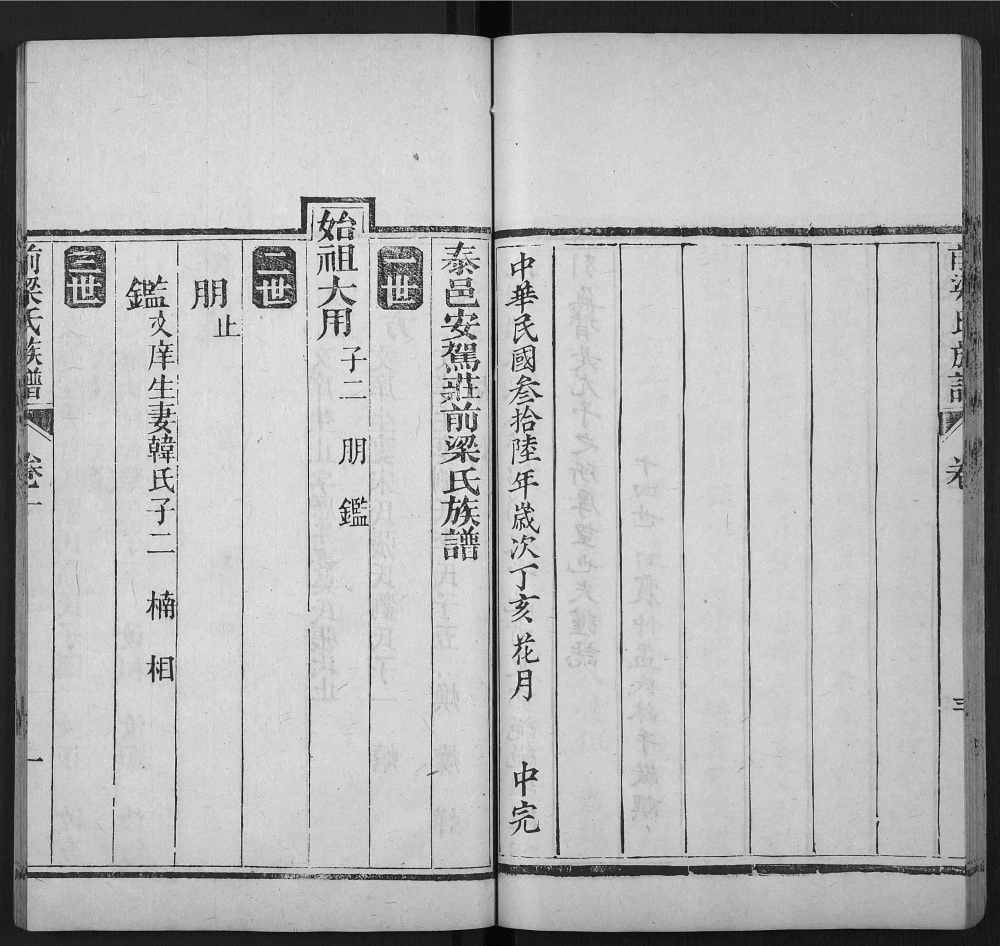 中華民國叁拾陸年歲次丁亥花月 中完
泰邑安駕莊前梁氏族譜
一世
始祖大用 子二 朋 鑑
二世
朋 止
鑑 文庠生妻韓氏子二 楠 相
三世
前梁氏族譜 卷一 一